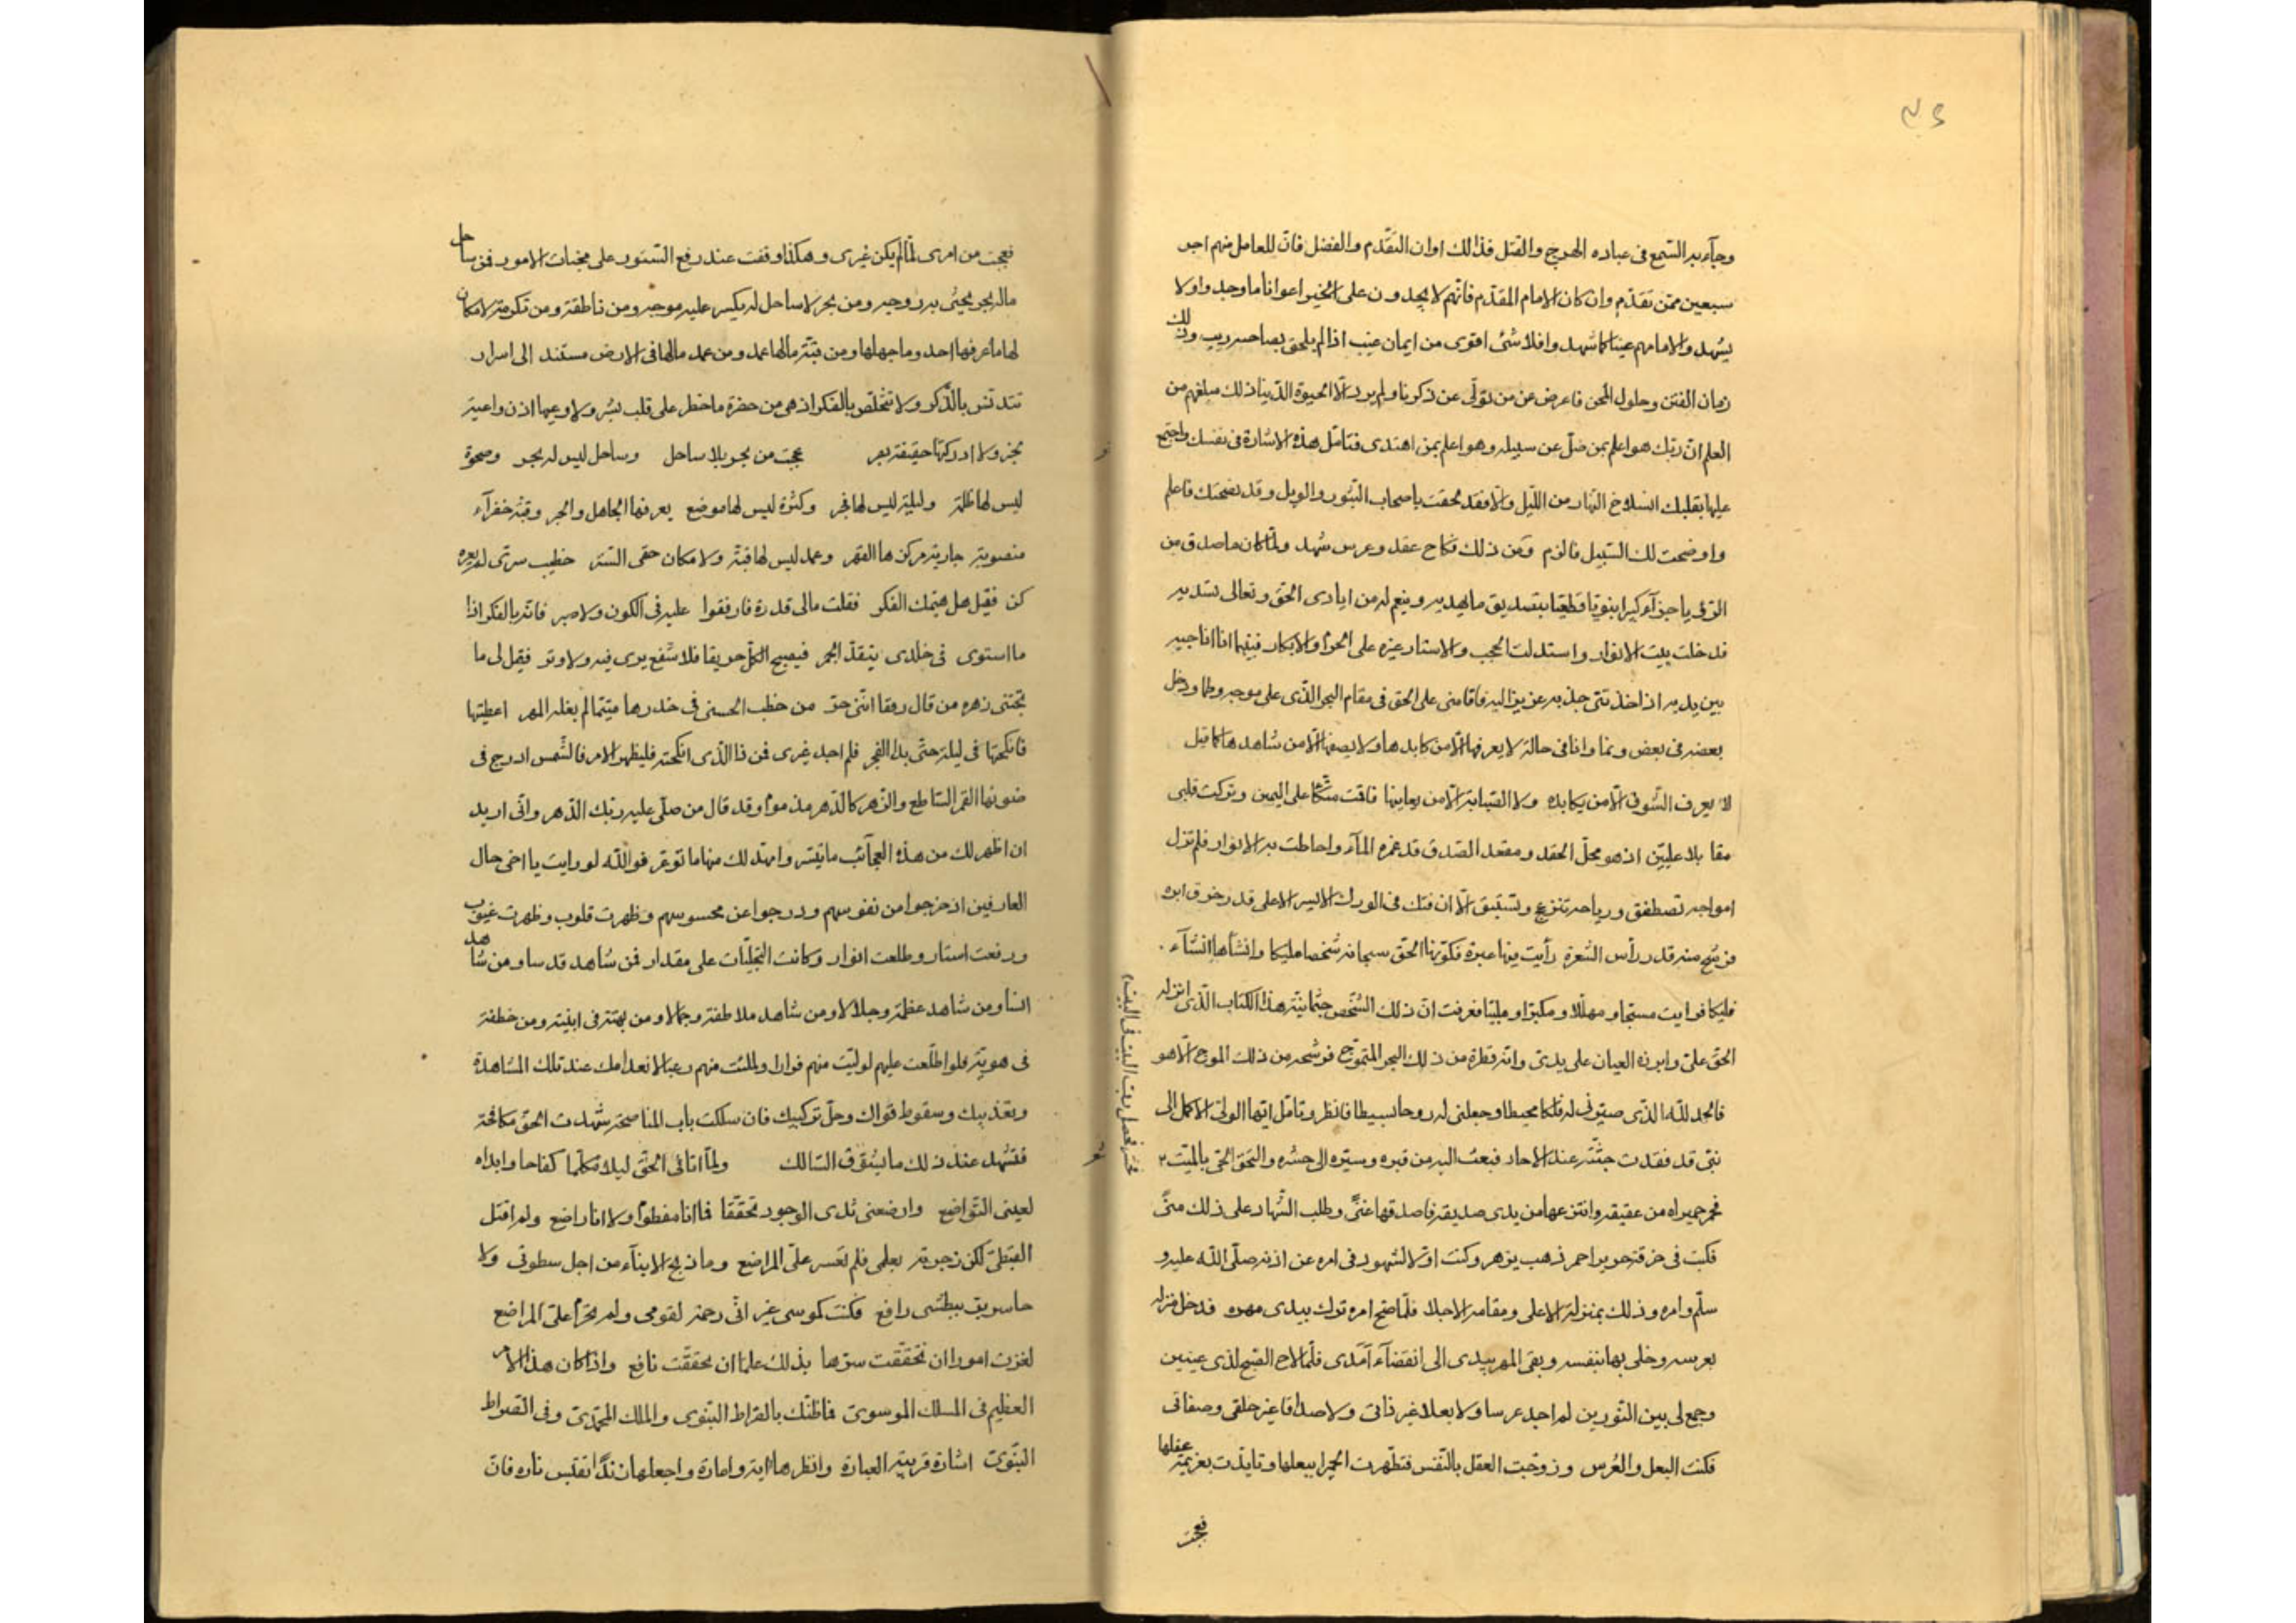 وجآء به السّمع فى عباده الهرج والقتل فذالك اوان التّقدّم والفضل فانّ للعامل منهم اجر
سبعين ممّن تقدّم وان كان الامام المقدّم فانّهم لا يجدون على الخير اعوانا ما وجد واولا
يشهد والامامهم عينا كما شهد وافلا شئ اقوى من ايمان غيب اذا لم يلحق بصاحبه ريب وذلك
زمان الفتن وحلول المحن فاعرض عن من تولّى عن ذكرنا ولم يرد الّا الحيوة الدّنيا ذلك مبلغهم من
العلم انّ ربّك هو اعلم بمن ضلّ عن سبيله وهو اعلم بمن اهتدى فتامّل هذه الاشارة فى نفسك واجتمع
عليها بقلبك انسلاخ النّهار من اللّيل والّا فقد لحقت باصحاب الثّبور والويل وقد نصحتك فاعلم
واوضحت لك السّبيل فالزم ومن ذلك نكاح عقد وعرس شهد ولمّا كان ما صدق من
الرّؤيا جزآء كبيرا نبويّا قطعيّا بتصديق ما يهديه وينعم له من ايادى الحقّ وتعالى تسديه
فدخلت بيت الانوار واسدلت الحجب والاستار غيرة على الحرم والابكار فبينما انا اناجيه
بين يديه اذ اخذتنى جذبة عزيز اليه فاقامنى على الحق فى مقام البحر الّذى علا موجه وطما ودخل
بعضه فى بعض ونما وانا فى حالة لا يعرفها الّا من كابدها ولا يصفها الّا من شاهدها كما قيل
لا يعرف الشّوق الّا من يكابده ولا الصّبابة الّا من يعانيها فاقت متّكئا على اليمين وتركت قلبى
مقابلا عليّين اذ هو محلّ الحقد ومقعد الصّدق قد غمره المآء واحاطت به الانوار فلم تزل
امواجه تصطفق ورياحه تزعزع وتستبق الّا ان فتك فى الورك الايسر الاعلى قدر خرق ابره
فرشح منه قدر رأس الشّعرة رأيت فيها عبرة فكوّنها الحقّ سبحانه شخصا مليكا وانشأها انشآء
فليكا فرايت مسبّحا ومهلّلا ومكبّرا وملبّيا فعرفت انّ ذلك الشّخص جثمانيّة هذا الكتاب الّذى انزله
الحقّ علىّ وابرزه العيان على يدىّ وانّه قطرة من ذلك البحر المتموّج فرشحه من ذلك الموج الّا هو
فالحمد للّه الذّى صيّرنى له فلكا محيطا وجعلنى له روحا بسيطا فانظر وتامّل ايّها الولىّ الاكمل الى
نبىّ قد فقدت جثّته عند الاحاد فبعث اليه من قبره وسيّره الى حشره والتحق الحىّ بالميّت
فحمر حميراه من عقيقه وانتزعها من يدى صديقه فاصدقها عنّى وطلب الشّهاد على ذلك منّى
فكبت فى خرقة حرير احمر ذهب يزهر وكنت اوّل الشهود فى امره عن اذنه صلّى اللّه عليه و
سلّم وامره وذلك بمنزله الاعلى ومقامه الاجلا فلمّا صحّ امره ترك بيدى مهره فدخل منزله
بعرسه وخلى بها بنفسه وبقى المهر بيدى الى انقضآء آمدى فلمّا لاح الصّبح لذى عينين
وجمع لى بين النّورين لم اجد عرسا ولا بعلا غير ذاتى ولا صداقا غير خلقى وصفاتى
فكنت البعل والعُرس وزوّجت العقل بالنّفس فتطّهرت الحميرا ببعلها وتايّدت بعزيمة عقلها
فعجبت
ختم فحمل ربت البيت فى البيت
فعجبت من امرى لمّا لم يكن غيرى وهكذا وقفت عند رفع السّتور على مخبئات الامور فمن ساحل
ماله بحر يحيى به روحه ومن بحر لا ساحل له يكسر عليه موجه ومن ناطقة ومن تكرمة لا مكان
لها ما عرفها احد وما جهلها ومن قبّة مالها عمد ومن عمد مالها فى الارض مستند الى اسرار
تتدنّس بالذّكر ولا تتخلّص بالفكر اذ هى من حضرة ما خطر على قلب بشر ولا وعيها اذن واعية
بخبر ولا ادركتها حقيقة بصر عجبت من بحر بلا ساحل وساحل ليس له بحر وضحوة
ليس لها ظلمة وليلة ليس لها فجر وكثرة ليس لها موضع يعرفها الجاهل والحبر وقبّة خضرآء
منصوبة جارية مركزها القهر وعمد ليس لها قبّة ولا مكان خفى السّتر خطيب سرّى لم يعره
كن فقيل هل هيّمك الفكر فقلت مالى قدرة فارفقوا عليه فى الكون ولا صبر فانّه بالفكر اذا
ما استوى فى خلدى يتقّد الجمر فيصبح الكلّ حريقا فلا شفع يرى فيه ولا وتر فقيل لى ما
تجتنى زهره من قال رفقا انّنى حرّ من خطب الحسنى فى خدرها متيّما لم يغله المهر اعطيتها
فانكحتها فى ليلة حتّى بدا الفجر فلم اجد غيرى فمن ذا الّذى انكحته فليظهر الامر فالشّمس ادرج فى
ضوئها القمر السّاطع والزّهر كالدّهر مذموما وقد قال من صلّى عليه ربّك الدّهر وانّى اريد
ان اظهر لك من هذه العجآئب ما تيسّر وامهّد لك منها ما توعّر فواللّه لو رايت يا اخى حال
العارفين اذ خرجوا من نفوسهم ودرجوا عن محسوسهم وظهرت قلوب وظهرت غيوب
ورفعت استار وطلعت انوار وكانت التجلّيات على مقدار فمن شاهد قدسا ومن شاهد
انسا ومن شاهد عظمة وجلالا ومن شاهد ملاطفة وجمالا ومن بهتة فى ابنيّته ومن خطفة
فى هويّته فلو اطّلعت عليهم لولّيت منهم فرارا ولملئت منهم رعبا لانعدامك عند تلك المشاهدة
وبعذيبك وسقوط قواك وحلّ تركيبك فان سلكت باب المناصحة شهدت الحقّ مكافحة
فتشهد عند ذلك ما يشوّق السّالك ولمّا اتانى الحقّ ليلا مكلّما كفاحا وابداه
لعينى التّواضع وارضعنى ثدى الوجود تحقّقا فما انا مفطوم ولا انا راضع ولم اقتل
القبطىّ لكن زجرته بعلمى فلم تعسر علىّ المراضع وما ذبح الابنآء من اجل سطوتى ولا
جا سويق ببطشى رافع فكنت كموسى غير انّى رحمة لقومى ولم تحرّم علىّ المراضع
لغزت امورا ان تحققت سرّها بذلك علما ان تحقّقت نافع واذا كان هذا الامر
العظيم فى المسلك الموسوىّ فما ظنّك بالصّراط النّبوى والملك المحمّدىّ وفى الصّراط
النبّوىّ اشارة قريبة العبارة وانظرها اية وامارة واجعلها زندًا تقتبس ناره فانّ